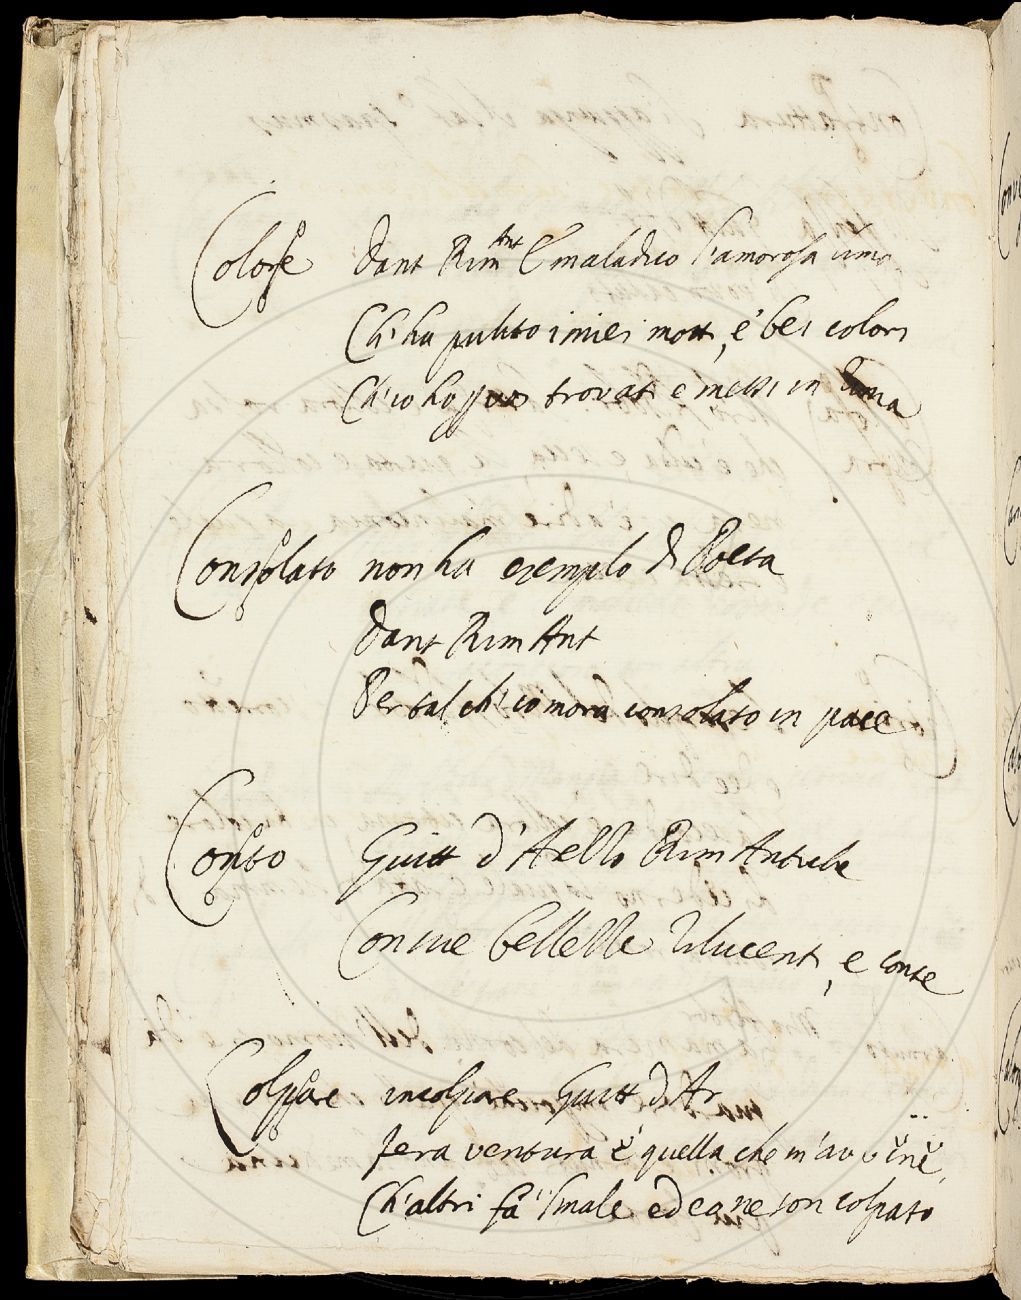 Colore Dant Rim Ant E maladico l'amorosa lima
Ch'ha pulito i miei motti, e' bei colori
Ch'io ho per voi trovati e messi in rima
Consolato non ha esemplo di Poeta
Dant Rim Ant
Per tal ch'io mora consolato in pace
Conto Guitt d'Arezzo Rim Antiche
Con sue bellezze rilucenti, e conte
Colpare incolpare Guitt d'Ar
fera ventura è quella che m'avvene,
Ch'altri fa 'l male ed eo ne son colpato